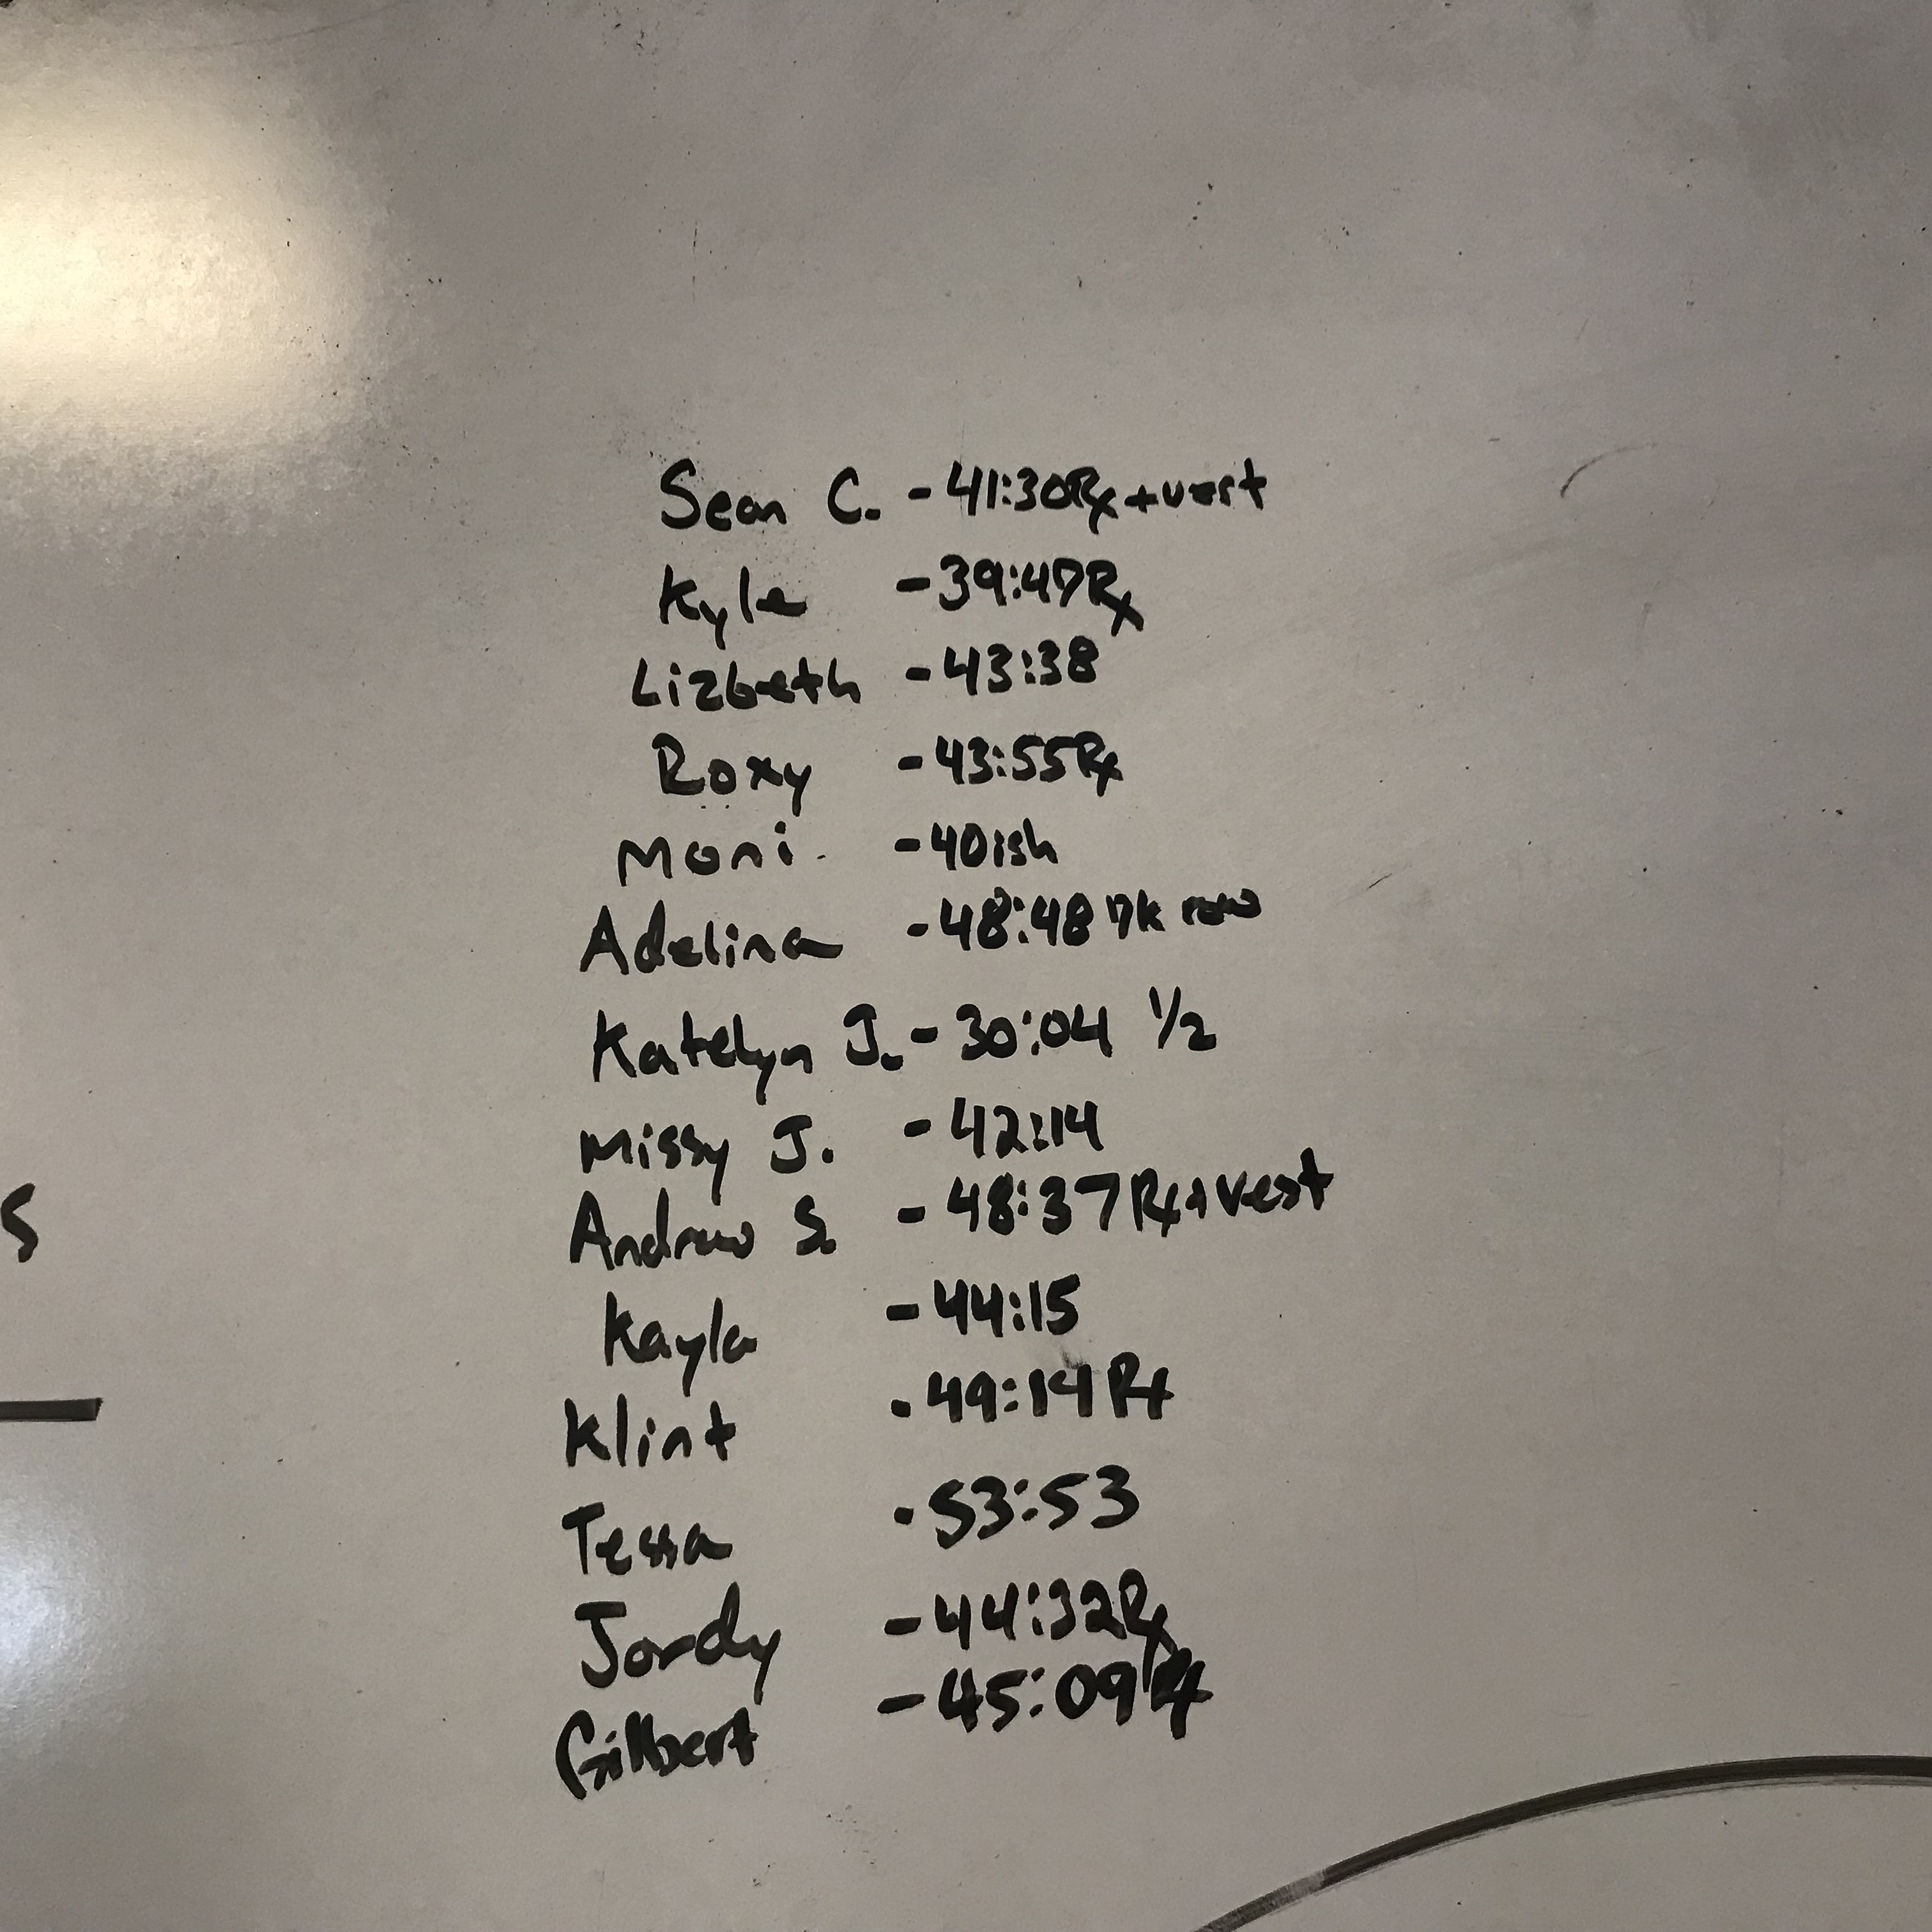 Sean C. - 41:30 Rx + vest
Kyle - 39:47 Rx
Lizbeth - 43:38
Roxy - 43:55 Rx
Moni - 40ish
Adelina - 48:48 7k row
Katelyn J. - 30:04 1/2
Missy J. - 42:14
Andrew S. - 48:37 Rx + vest
Kayla - 44:15
Klint - 49:14 Rx
Tessa - 53:53
Jordy - 44:32 Rx
Gilbert - 45:09 Rx
S